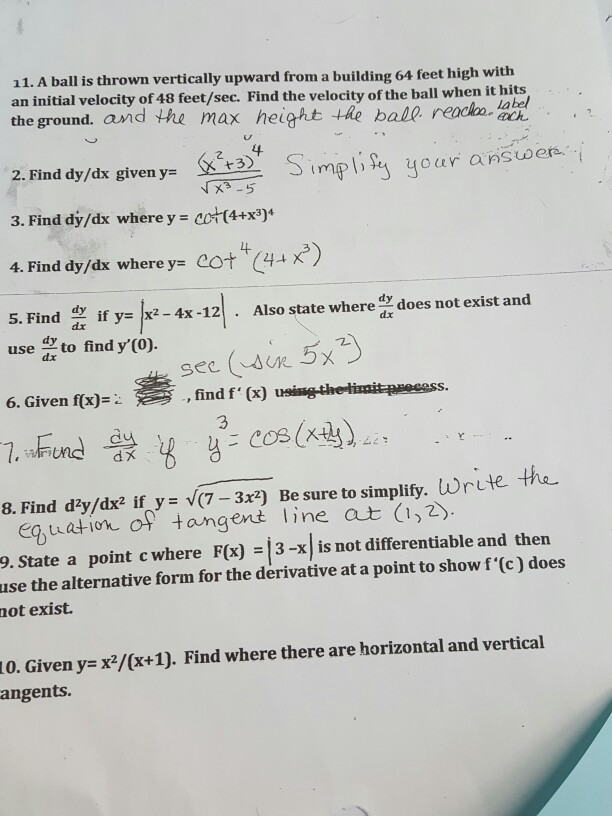 11. A ball is thrown vertically upward from a building 64 feet high with
an initial velocity of 48 feet/sec. Find the velocity of the ball when it hits
the ground. and the max height the ball reaches. Label each
2. Find dy/dx given y= (x²+3)⁴/√x³-5 Simplify your answer
3. Find dy/dx where y = cot(4+x³)⁴
4. Find dy/dx where y= cot⁴(4+x³)
5. Find dy/dx if y= |x² – 4x -12| . Also state where dy/dx does not exist and
use dy/dx to find y'(0).
sec (sin 5x²)
6. Given f(x)= , find f' (x) using the limit process.
7. Find dy/dx if y³ = cos(x+y)
8. Find d²y/dx² if y = √(7 – 3x²) Be sure to simplify. Write the
equation of tangent line at (1,2).
9. State a point c where F(x) = |3 –x| is not differentiable and then
use the alternative form for the derivative at a point to show f '(c) does
not exist.
10. Given y= x²/(x+1). Find where there are horizontal and vertical
angents.